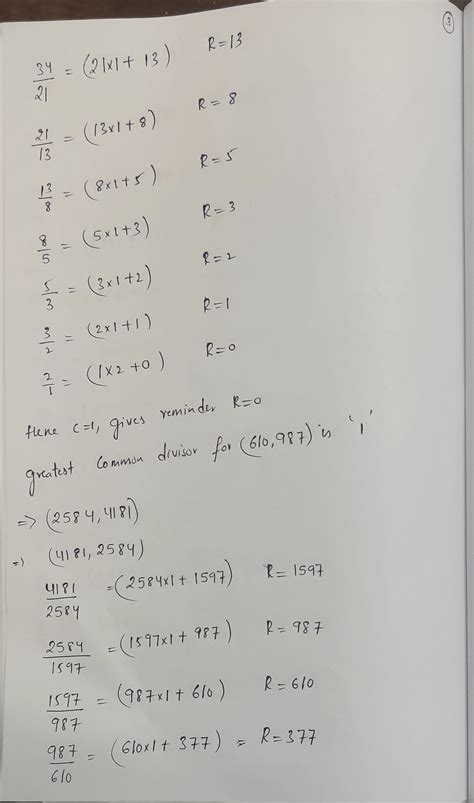 3
34/21 = (21x1 + 13) R=13
21/13 = (13x1+8) R= 8
13/8 = (8x1+5) R=5
8/5 = (5x1+3) R=3
5/3 = (3x1+2) R=2
3/2 = (2x1+1) R=1
2/1 = (1x2+0) R=0
Hene C=1, gives reminder R=0
greatest common divisor for (610,987) is '1'
=> (2584, 4181)
=> (4181, 2584)
4181/2584 = (2584x1 + 1597) R= 1597
2584/1597 = (1597x1 + 987) R= 987
1597/987 = (987x1 + 610) R= 610
987/610 = (610x1 + 377) = R= 377